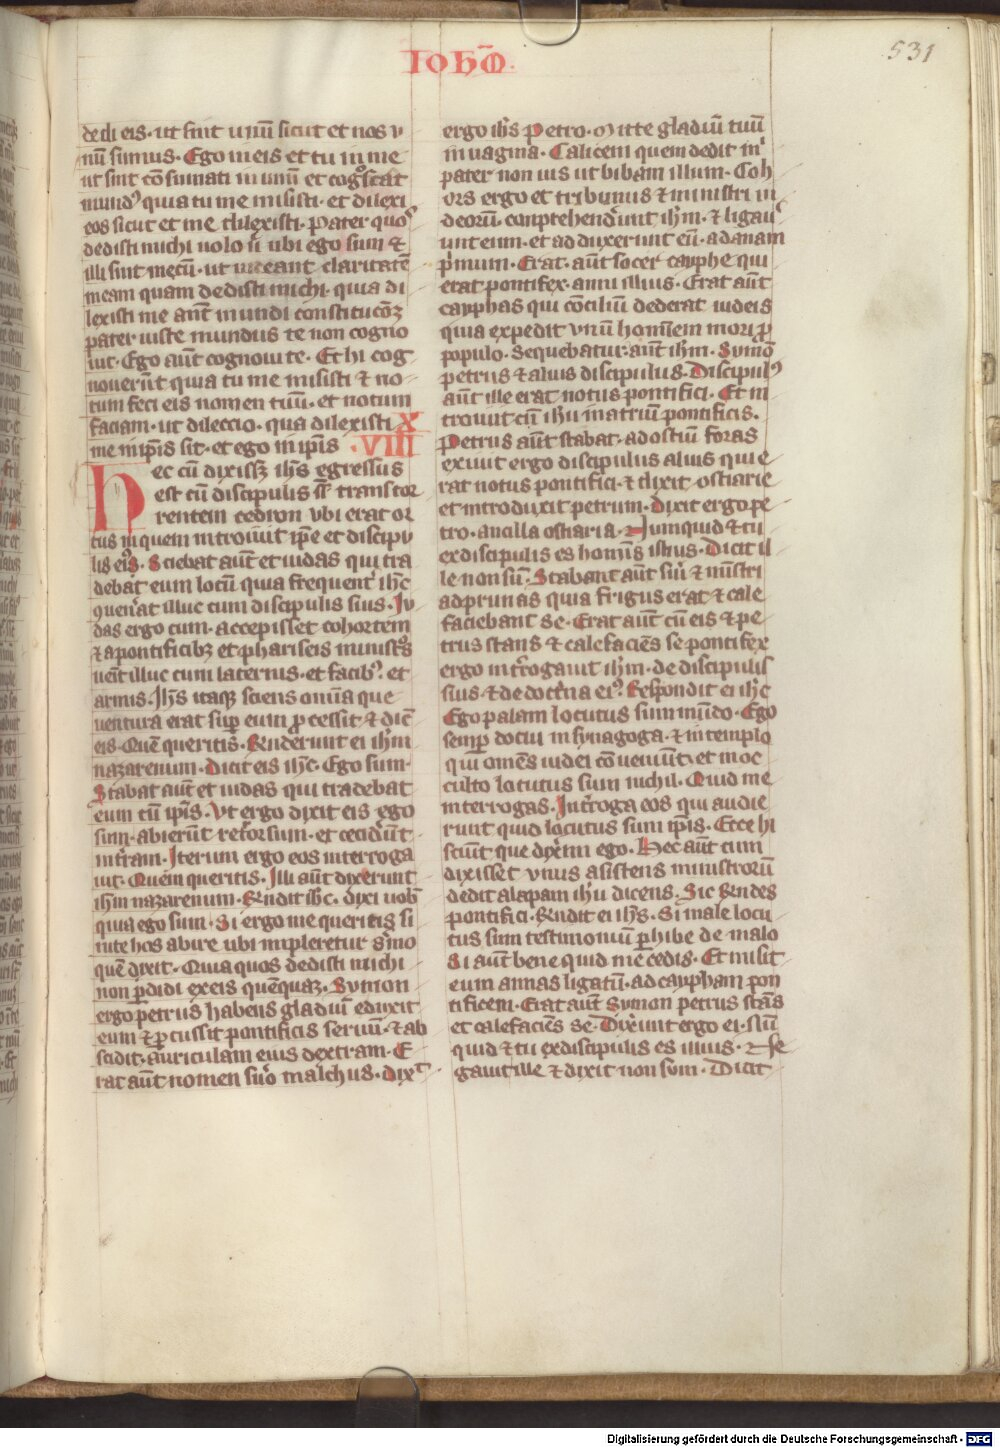 Ioħes.
531
dedi eis. ut sint unū sicut et nos v
nū sumus. Ego in eis et tu in me
ut sint cōsumati in unū et cogͦscat
mundꝰ quia tu me misisti. et dilexi
eos sicut et me dilexisti. Pater quoˢ
dedisti michi uolo ū ubi ego sum ⁊
illi sint mecū. ut uideant claritatē
meam quam dedisti michi. quia di
lexisti me anͭ mundi constitucōꝫ
pater iuste mundus te non cogno
uit. Ego aūt cognoui te. Et hi cog
nouerūt quia tu me misisti ⁊ no
tum feci eis nomen tuū. et notum
faciam. ut dileccio. qua dilexisti X
me in ip̄is sit. et ego in ip̄is .VIII
Hec cū dixissꝫ ih̄s egressus
est cū discipulis s̄ trans tor
rentem cedron vbi erat or
tus in quem introiuit ip̄e et discipu
lis eiꝰ. Sciebat aūt et iudas qui tra
debat eum locū quia frequent̓ ih̄c
ꝯuen̓at illuc cum discipulis suis. Iu
das ergo cum. accepisset cohortem
⁊ a pontificibꝫ et phariseis ministͦs
uen̄t illuc cum laternis. et facibꝰ. et
armis. Ih̄s itaqꝫ sciens omīa que
uentura erat sup̄ eum ꝓcessit ⁊ dic̄
eis. Quē queritis. Rn̄derunt ei ih̄m
nazarenum. Dicit eis ih̄c. Ego sum.
Stabat aūt et iudas qui tradebat
eum cū ip̄is. Vt ergo dixit eis ego
sum. abierūt ret̓orsum. et cecid̓ūt
in t̓ram. Iterum ergo eos interroga
uit. Quem queritis. Illi aūt dixerunt
ih̄m nazarenum. Rn̄dit ih̄c. dixi uob̄
quia ego sum. Si ergo me queritis si
nite hos abire ubi impleretur s̓mo
quē dixit. Quia quos dedisti michi
non ꝑdidi ex eis quēquaꝫ. Symon
ergo petrus habens gladiū eduxit
eum ⁊ ꝑcussit pontificis seruū. ⁊ ab
scidit. auriculam eius dextram. E
rat aūt nomen s̓uo malchus. Dixͭ
ergo ih̄s Petro. Mitte gladiū tuū
in uagina. Calicem quem dedit mͥ
pater non uis ut bibam illum. Coh
ors ergo et tribunus ⁊ ministri iu
deorū. conprehenderūt ih̄m. ⁊ ligaū
unt eum. et adduxerunt eū. ad anam
pͥmum. Erat. aūt socer cayphe qui
erat pontifex. anni illius. Erat aūt
cayphas qui cōciliū dederat iudeis
quia expedit vnū hominem mori ꝓ
populo. Sequebatur. aūt ih̄m. Symō
petrus ⁊ alius discipulus. Discipulꝰ
aūt ille erat notus pontifici. Et in
troiuit cū ih̄u in atrium pontificis.
Petrus aūt stabat. ad ostiū foras
exiuit ergo discipulus alius qui e
rat notus pontifici. ⁊ dixit ostiarie
et introduxit petrum. Dixit ergo pe
tro. ancilla ostiaria. Nunquid ⁊ tu
ex discipulis es homīs istius. Dicit il
le non sū. Stabant aūt s̓ui ⁊ mīstri
ad prunas quia frigus erat ⁊ cale
faciebant se. Erat aūt cū eis ⁊ pe
trus stans ⁊ calefaciēs se pontifex
ergo int̓rogauit ih̄m. de discipulis
suis ⁊ de doct̓na eiꝰ. Respondit ei ih̄c
Ego palam locutus sum mūdo. Ego
semp̄ docui in synagoga. ⁊ in templo
qui omēs iudei cōueniūt. et in oc
culto locutus sum nichil. Quid me
interrogas. Int̓roga eos qui audie
runt quid locutus sum ip̄is. Ecce hi
sciūt que dixerim ego. Hec aūt cum
dixisset vnus asistens ministrorū
dedit alapam ih̄u dicens. Sic Rn̄des
pontifici. Rn̄dit ei ih̄s. Si male locu
tus sum testimoniū ꝑhibe de malo
Si aūt bene quid me cedis. Et misit
eum annas ligatū. ad caypham pon
tificem. Erat aūt Symon petrus stās
et calefaciēs se. Dixerunt ergo ei. Nū
quid ⁊ tu ex discipulis es illius. Ne
gauit ille ⁊ dixit non sum. Dicit
Digitalisierung gefördert durch die Deutsche Forschungsgemeinschaft - DFG